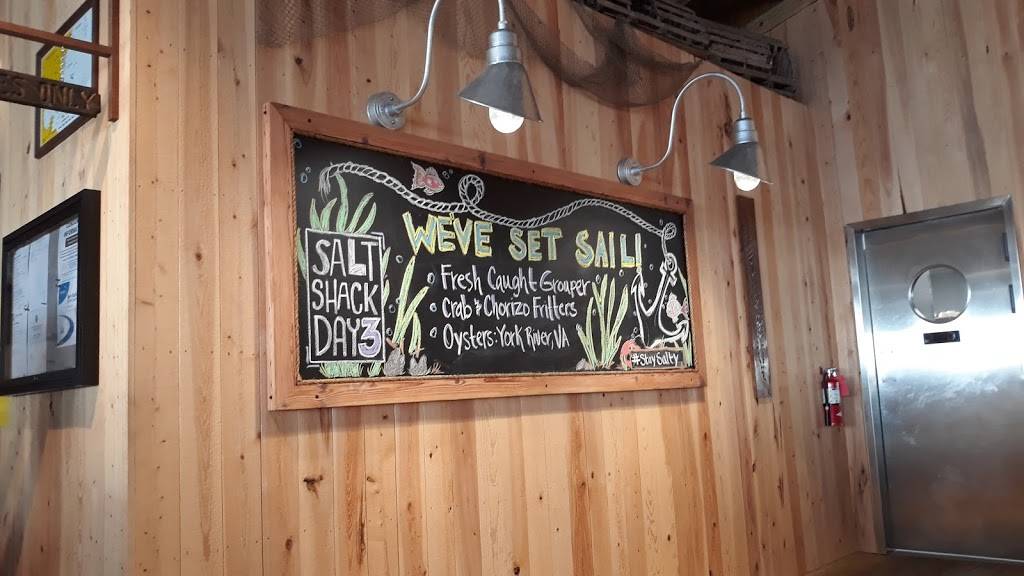 S ONLY
WE'VE SET SAIL!
SALT
SHACK
DAY 3
Fresh Caught Grouper
Crab & Chorizo Fritters
Oysters: York River, VA
#StaySalty